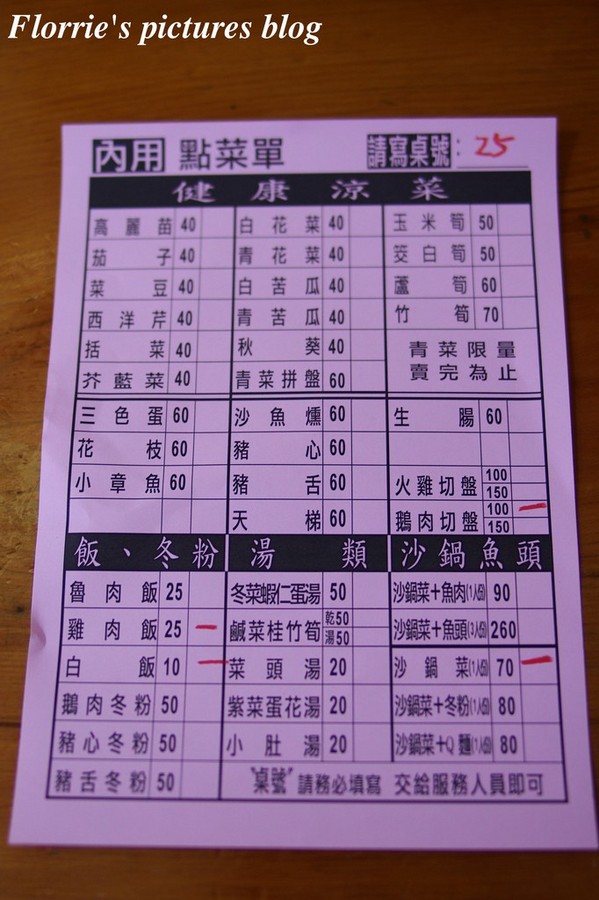 Florrie's pictures blog
內用 點菜單 請寫桌號: 25
健康涼菜
高麗苗 40 白花菜 40 玉米筍 50
茄子 40 青花菜 40 筊白筍 50
菜豆 40 白苦瓜 40 蘆筍 60
西洋芹 40 青苦瓜 40 竹筍 70
括菜 40 秋葵 40 青菜限量
芥藍菜 40 青菜拼盤 60 賣完為止
三色蛋 60 沙魚燻 60 生腸 60
花枝 60 豬心 60
小章魚 60 豬舌 60 火雞切盤 100 150
天梯 60 鵝肉切盤 100 150
飯、冬粉 湯類 沙鍋魚頭
魯肉飯 25 冬菜蝦仁蛋湯 50 沙鍋菜+魚肉(1人份) 90
雞肉飯 25 鹹菜桂竹筍 乾50 湯50 沙鍋菜+魚頭(3人份) 260
白飯 10 菜頭湯 20 沙鍋菜(1人份) 70
鵝肉冬粉 50 紫菜蛋花湯 20 沙鍋菜+冬粉(1人份) 80
豬心冬粉 50 小肚湯 20 沙鍋菜+Q麵(1人份) 80
豬舌冬粉 50 "桌號"請務必填寫 交給服務人員即可